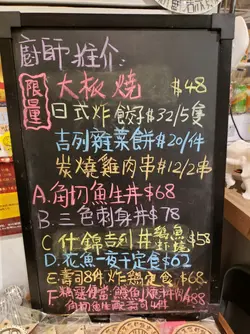 廚師推介
限量
大板燒 $48
日式炸餃子 $32/5隻
吉列雜菜餅 $20/件
炭燒雞肉串 $12/2串
A. 角切魚生丼 $68
B. 三色刺身丼 $78
C 什錦吉列丼 $58
D. 花魚一夜干定食 $62
E. 壽司8件 炸雞定食 $68
F. 鰻魚 $88